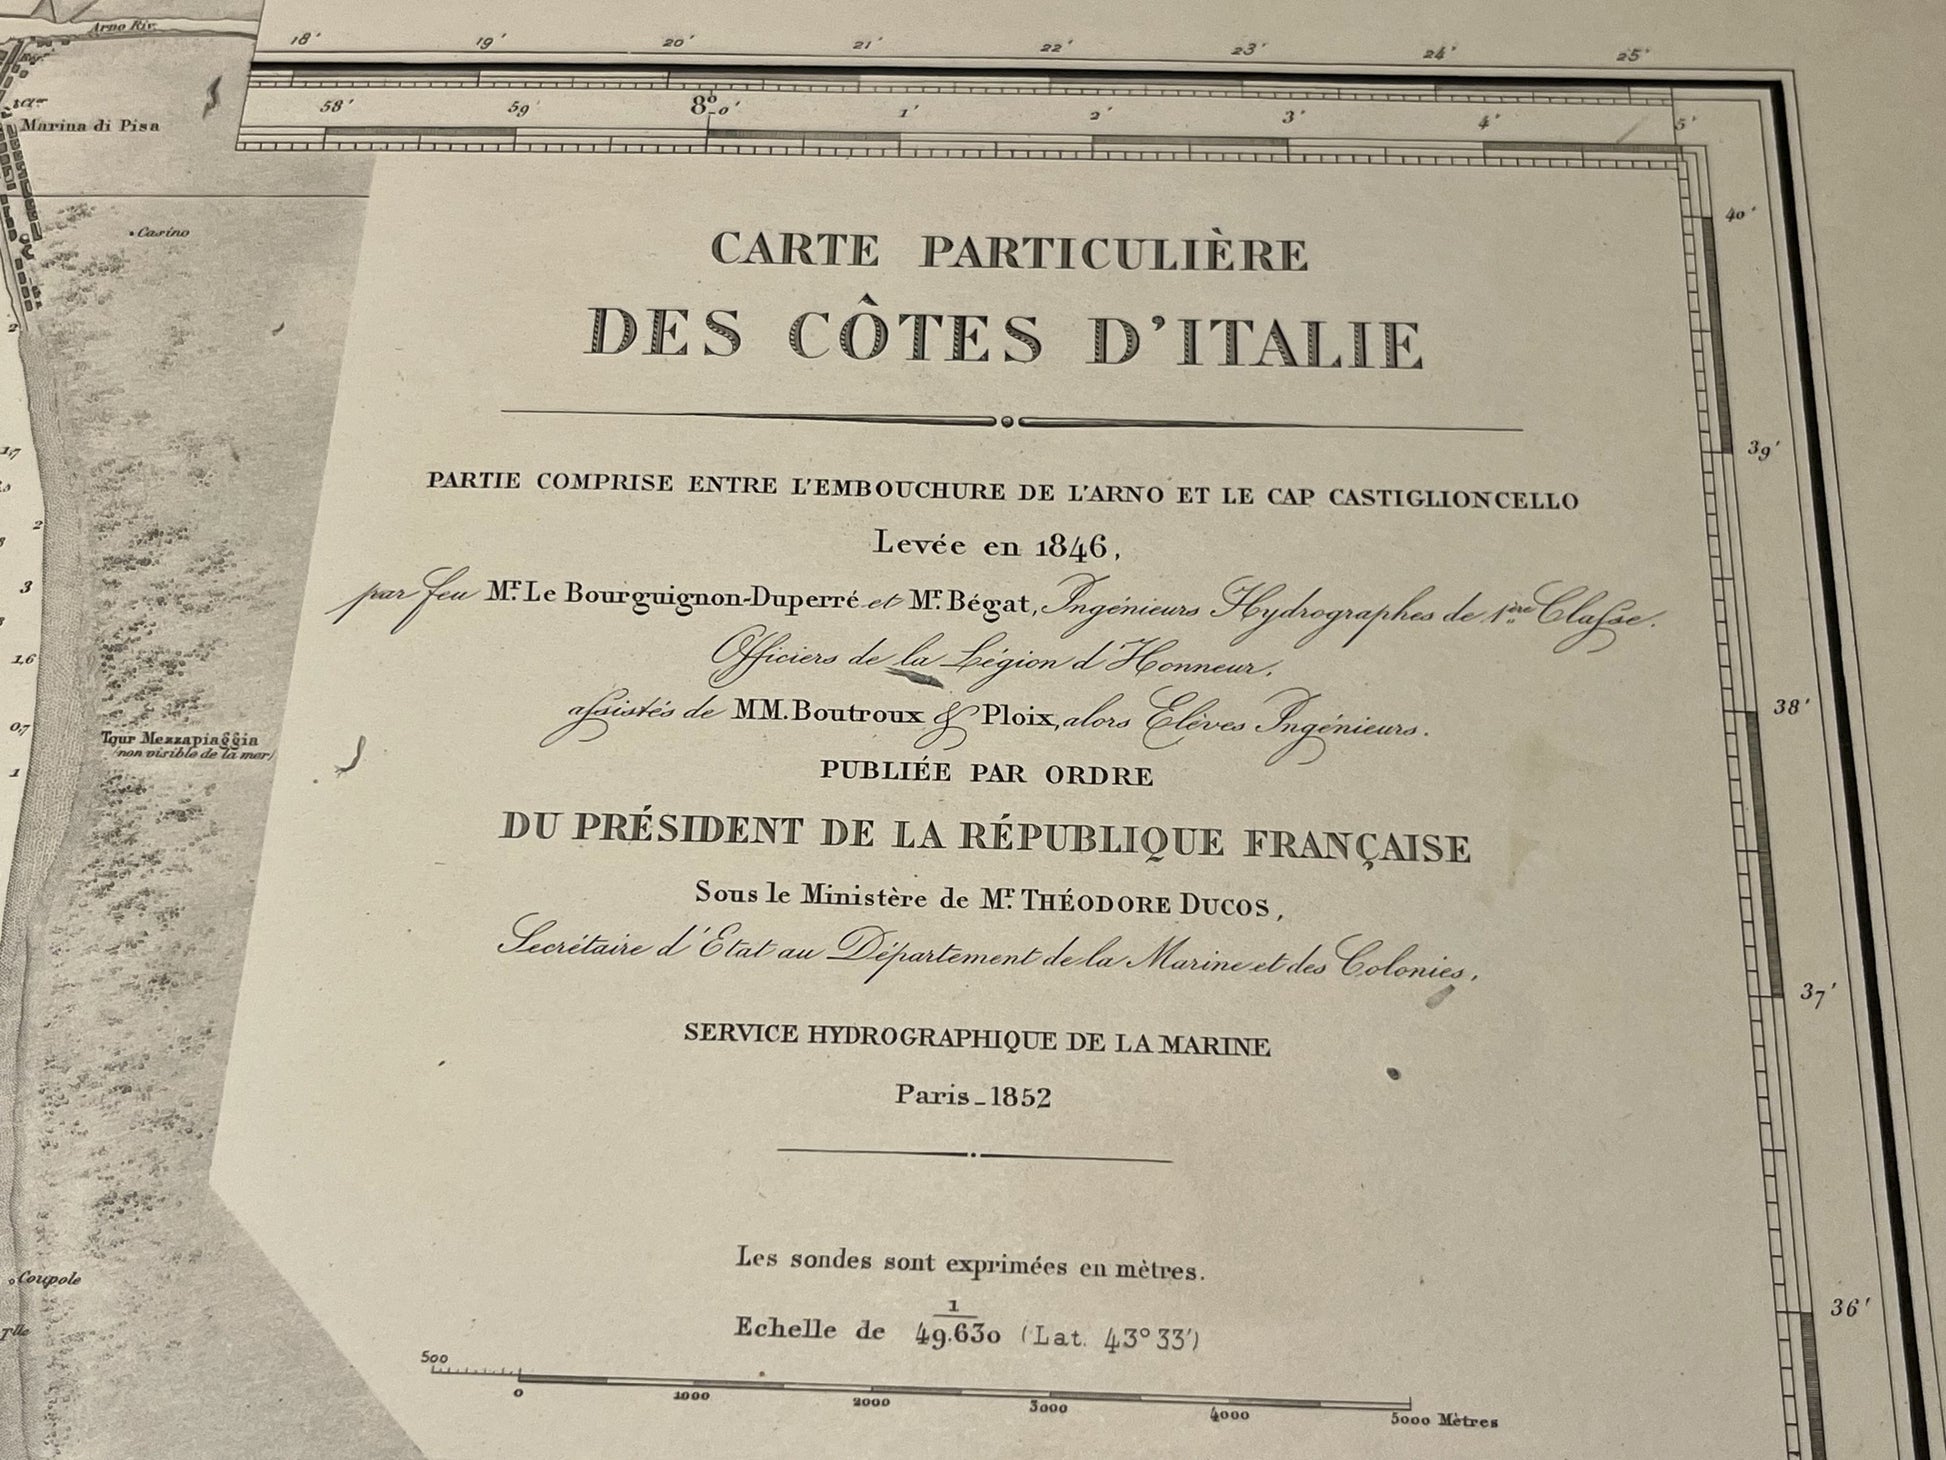 Arno Riv.
18' 19' 20' 21' 22' 23' 24' 25'
58' 59' 8° 0' 1' 2' 3' 4' 5'
Marina di Pisa
Casino
40'
CARTE PARTICULIÈRE
DES CÔTES D'ITALIE
39'
PARTIE COMPRISE ENTRE L'EMBOUCHURE DE L'ARNO ET LE CAP CASTIGLIONCELLO
Levée en 1846,
par feu Mr. Le Bourguignon-Duperré et Mr. Bégat, Ingénieurs Hydrographes de 1ère Classe.
Officiers de la Légion d'Honneur,
assistés de MM. Boutroux & Ploix, alors Elèves Ingénieurs.
38'
PUBLIÉE PAR ORDRE
DU PRÉSIDENT DE LA RÉPUBLIQUE FRANÇAISE
Sous le Ministère de Mr. THÉODORE DUCOS,
Secrétaire d'Etat au Département de la Marine et des Colonies.
37'
SERVICE HYDROGRAPHIQUE DE LA MARINE
Paris_1852
Les sondes sont exprimées en mètres.
36'
Echelle de 1/49.630 (Lat. 43°33')
500 0 1000 2000 3000 4000 5000 Mètres
2
1,7
2
3
1,6
0,7
1
Tour Mezzapiaggia
(non visible de la mer)
Coupole